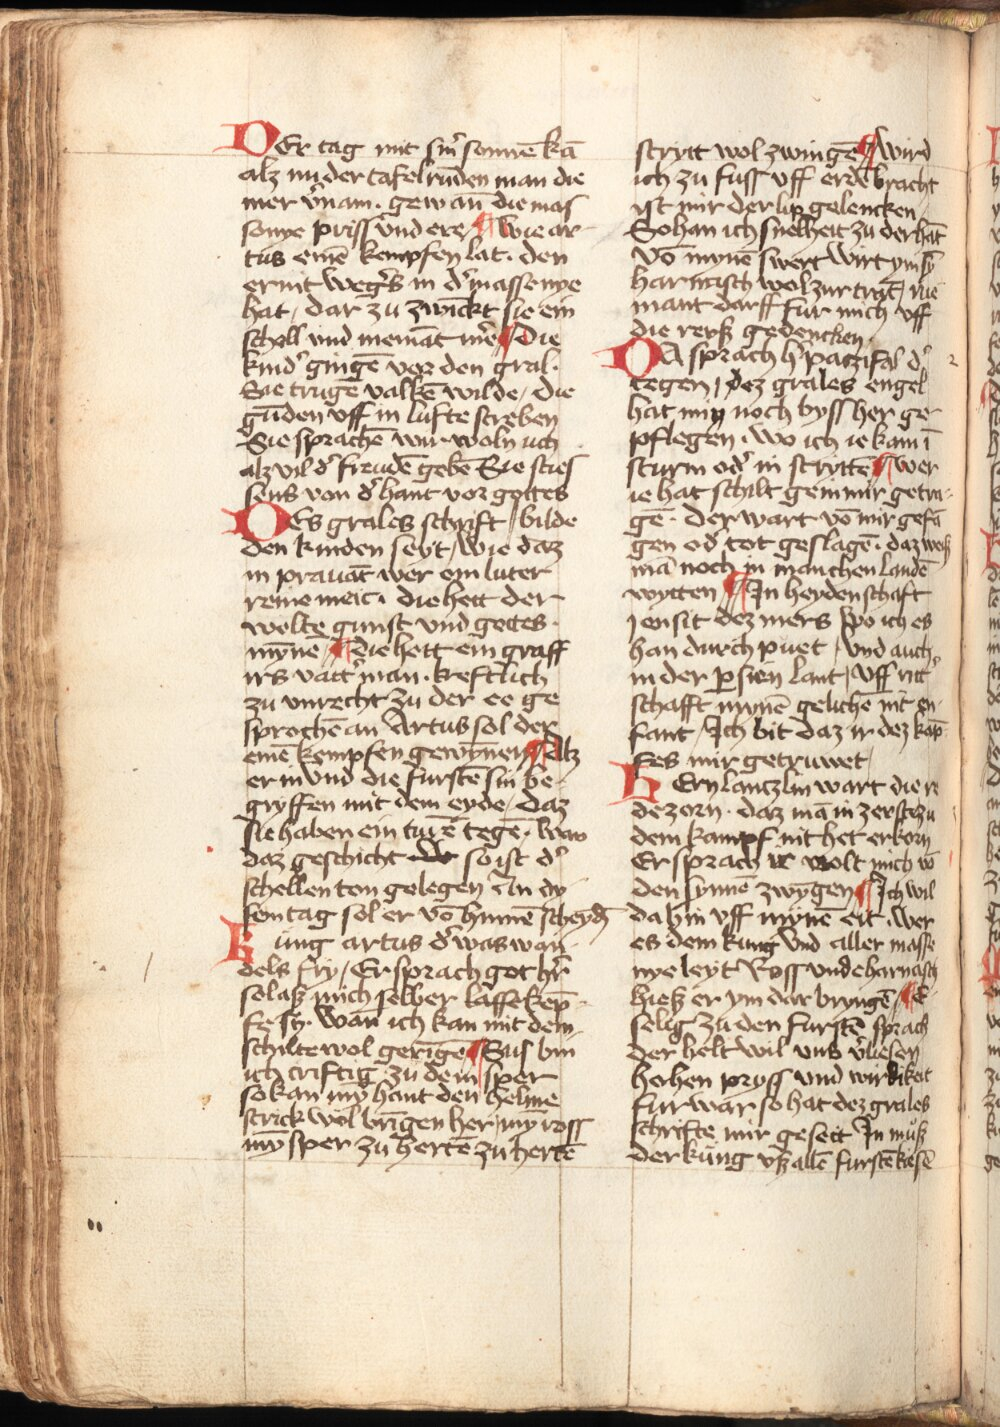 DEr tag mit sin̄ sonnē kā
alz nu der tafelrūden man die
mer v̓nam · gewan̄ die mas
sonye priss vnd ere / ¶ Wie ar
tus einē kempfen lat · den
ernit weg̓s in d̓ massenye
hat / dar zu zwickt sie ein
schell und niemāt mē ¶ Die
kind̓ gingē vor den gral ·
Sie trugē valkē wilde / die
gūden vff in lufte streben
Sie sprachē wir woln uch
alz vil d̓ freudē gebē Sie sties
sens von d̓ hant vor gottes
DEs grales schrift / bilde
den kinden seyt / wie daz
in pravāt wer ein luter
reine meit · die hett der
welte gunst vnd gotes ·
mȳne / ¶ Die hett ein graff
irs vatt̓ man · kreftlich
zu vnrecht zu der ee ge
sprochē an Artus sol der
einē kempfen gewȳnen ¶ Alz
er in vnd die furstē sin be-
gryffen mit dem eyde / daz
sie haben ein turē tegē · wan
daz geschicht so ist d̓
schellen ton gelegen An dy
sen tag sol er vō hinnē scheydē
Küng artus d̓ was wan
dels fry / Er sprach got h̓r
so laß mich selber lasse kēp
fe sy · Wan̄ ich kan mit dem
schilte wol gerīgē ¶ Sus bin
ich criftig zu dem sper
so kan mȳ hant den helme
strick wol brīgen her / mȳ ross
mȳ sper zu hertē zu hertē
strytt wol zwingē ¶ Wird
ich zu fuss vff erdē bracht
ist mir der lip gelencken
So han ich snelheit zu der hāt
Vō mynē swert wirt ym sȳ
harnisch wol zur trāt / nie
mant darff fur mich vff
die reyß gedencken
DA sprach h̓ patzifal d̓
tegen / dez grales engel
hat min noch byss her ge
pflegen · wo ich ie kam ī
sturm od̓ in strytte ¶ wer
ie hat schilt gein mir getra-
gē · der wart vō mir gefā
gen od̓ tot geslagē · daz weß
mā noch in manchen landē
wytten ¶ In heydenschaft
jensit dez mers wo ich es
han durch puet / vnd auch
in der p̲sien lant / vff ritt̓
schafft mynē gelichē nit en
fant / Ich bit daz ir dez kāp
fes mir getruwet
HErn lantzlin wart die re
de zorn · daz mā in zerst zu
dem kampf nit het erkorn
Er sprach ir wolt mich vō
den synnē zwȳgen ¶ Ich wil
da hin vff mynē eit · wer
es dem kung vnd aller masse
nye leyt Ross vnde harnasch
hieß er ym dar bryngē / ¶ E
selig zu den furstē sprach
der helt wil vns v̓liesen
hohen pryss vnd wirdikeit
fur war so hat dez grales
schrifte mir geseit In muß
der küng vß allē furstē kiesē